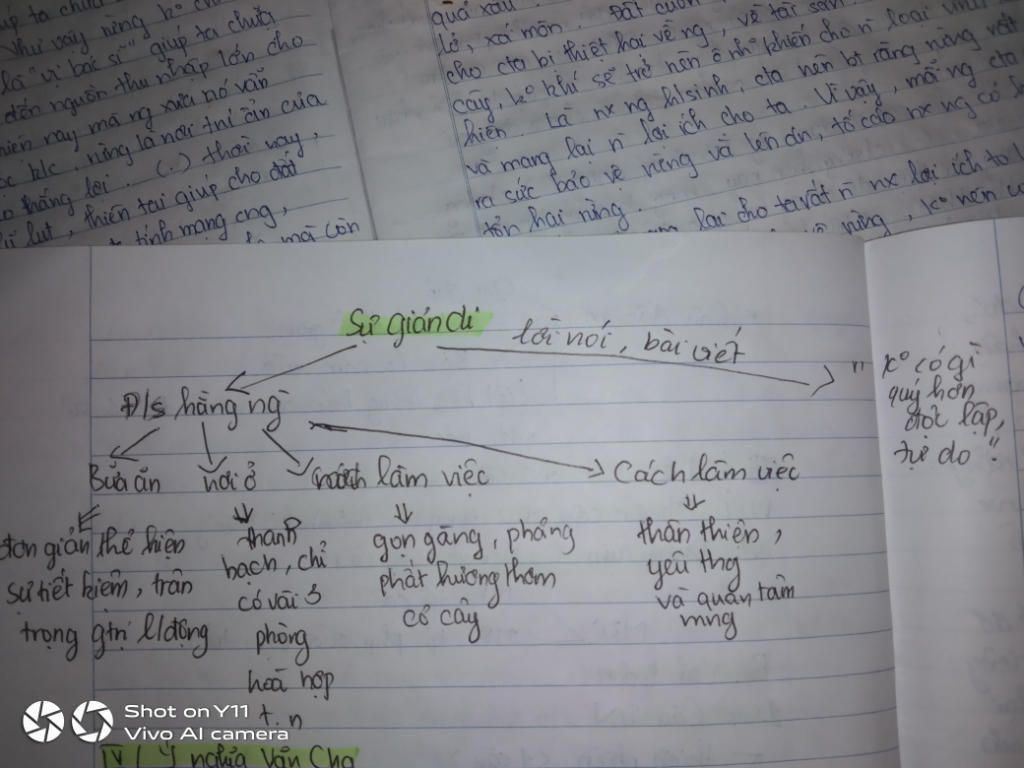 úp ta chữa
Như vậy rừng k° ch
là "vị bác sĩ" giúp ta chữa
đến nguồn thu nhập lớn cho
hiên nay mà ng xưa nó vẫn
rừng là nơi trú ẩn của
thắng lợi. (.) thời nay,
lũ lụt, thiên tai giúp cho đất
tính mạng cng,
mà còn
quá xấu.
lở, xói mòn. Đất
cho cta bị thiệt hại về ng, về tài sản
cây, k° khí sẽ trở nên ô nh° khiến cho n loài
hiên. Là nx ng hlsinh, cta nên bt rằng rừng rất
và mang lại n lợi ích cho ta. Vì vậy, mỗi ng cta
ra sức bảo vệ rừng và lên án, tố cáo nx ng có
tổn hại rừng.
lại cho ta rất n nx lợi ích to l
rừng, k° nên
Sự giản dị
lời nói, bài viết
Đ/s hằng ng
" k° có gì
quý hơn
độc lập,
tự do "
Bữa ăn nơi ở làm việc Cách làm việc
đơn giản thể hiện
sự tiết kiệm, trân
trọng gtrị lđộng
thanh
bạch, chỉ
có vài 3
phòng
hoà hợp
t.n
gọn gàng, phảng
phất hương thơm
cỏ cây
thân thiện,
yêu thg
và quan tâm
mng
IV / Ý nghĩa Văn Chg
Shot on Y11
Vivo AI camera